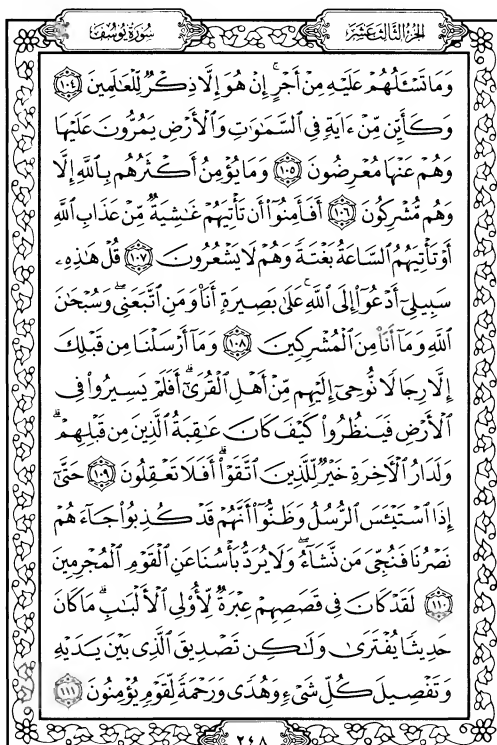 سُورَةُ يُوسُفَ الجُزْءُ الثَّالِثَ عَشَرَ
وَمَا تَسْـَٔلُهُمْ عَلَيْهِ مِنْ أَجْرٍ ۚ إِنْ هُوَ إِلَّا ذِكْرٌ لِّلْعَـٰلَمِينَ ١٠٤
وَكَأَيِّن مِّنْ ءَايَةٍ فِى ٱلسَّمَـٰوَٰتِ وَٱلْأَرْضِ يَمُرُّونَ عَلَيْهَا
وَهُمْ عَنْهَا مُعْرِضُونَ ١٠٥ وَمَا يُؤْمِنُ أَكْثَرُهُم بِٱللَّهِ إِلَّا
وَهُم مُّشْرِكُونَ ١٠٦ أَفَأَمِنُوٓا۟ أَن تَأْتِيَهُمْ غَـٰشِيَةٌ مِّنْ عَذَابِ ٱللَّهِ
أَوْ تَأْتِيَهُمُ ٱلسَّاعَةُ بَغْتَةً وَهُمْ لَا يَشْعُرُونَ ١٠٧ قُلْ هَـٰذِهِۦ
سَبِيلِىٓ أَدْعُوٓا۟ إِلَى ٱللَّهِ ۚ عَلَىٰ بَصِيرَةٍ أَنَا۠ وَمَنِ ٱتَّبَعَنِى ۖ وَسُبْحَـٰنَ
ٱللَّهِ وَمَآ أَنَا۠ مِنَ ٱلْمُشْرِكِينَ ١٠٨ وَمَآ أَرْسَلْنَا مِن قَبْلِكَ
إِلَّا رِجَالًا نُّوحِىٓ إِلَيْهِم مِّنْ أَهْلِ ٱلْقُرَىٰٓ ۗ أَفَلَمْ يَسِيرُوا۟ فِى
ٱلْأَرْضِ فَيَنظُرُوا۟ كَيْفَ كَانَ عَـٰقِبَةُ ٱلَّذِينَ مِن قَبْلِهِمْ ۗ
وَلَدَارُ ٱلْـَٔاخِرَةِ خَيْرٌ لِّلَّذِينَ ٱتَّقَوْا۟ ۗ أَفَلَا تَعْقِلُونَ ١٠٩ حَتَّىٰٓ
إِذَا ٱسْتَيْـَٔسَ ٱلرُّسُلُ وَظَنُّوٓا۟ أَنَّهُمْ قَدْ كُذِبُوا۟ جَآءَهُمْ
نَصْرُنَا فَنُجِّىَ مَن نَّشَآءُ ۖ وَلَا يُرَدُّ بَأْسُنَا عَنِ ٱلْقَوْمِ ٱلْمُجْرِمِينَ
١١٠ لَقَدْ كَانَ فِى قَصَصِهِمْ عِبْرَةٌ لِّأُو۟لِى ٱلْأَلْبَـٰبِ ۗ مَا كَانَ
حَدِيثًا يُفْتَرَىٰ وَلَـٰكِن تَصْدِيقَ ٱلَّذِى بَيْنَ يَدَيْهِ
وَتَفْصِيلَ كُلِّ شَىْءٍ وَهُدًى وَرَحْمَةً لِّقَوْمٍ يُؤْمِنُونَ ١١١
٢٤٨